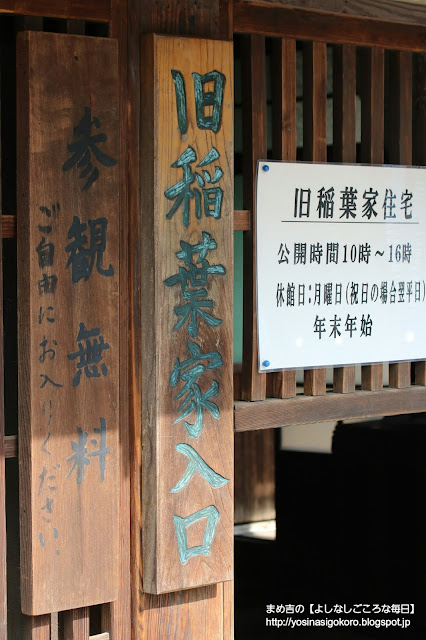 参観無料
ご自由にお入りください。
旧稲葉家入口
旧稲葉家住宅
公開時間10時～16時
休館日：月曜日（祝日の場合翌平日）
年末年始
まめ吉の【よしなしごころな毎日】
http://yosinasigokoro.blogspot.jp